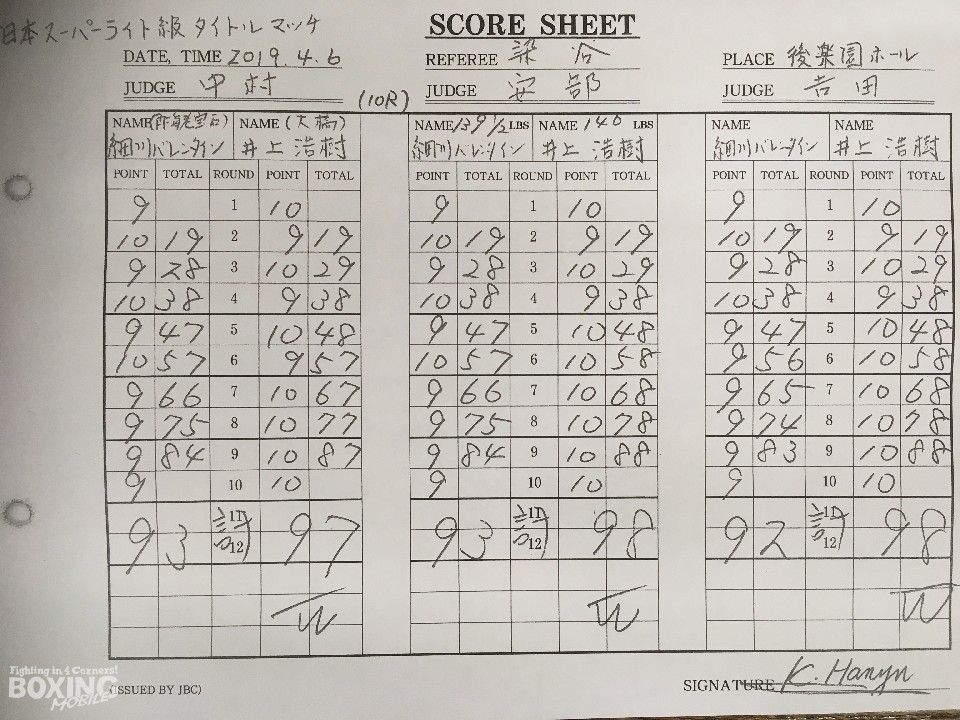 日本スーパーライト級 タイトルマッチ
SCORE SHEET
DATE, TIME 2019. 4. 6
REFEREE 染谷
PLACE 後楽園ホール
JUDGE 中村
(10R)
JUDGE 安部
JUDGE 吉田
NAME NAME (大橋) NAME 139 1/2 LBS NAME 140 LBS NAME NAME
細川バレンタイン 井上浩樹 細川バレンタイン 井上浩樹 細川バレンタイン 井上浩樹
POINT TOTAL ROUND POINT TOTAL POINT TOTAL ROUND POINT TOTAL POINT TOTAL ROUND POINT TOTAL
9 1 10 9 1 10 9 1 10
10 19 2 9 19 10 19 2 9 19 10 19 2 9 19
9 28 3 10 29 9 28 3 10 29 9 28 3 10 29
10 38 4 9 38 10 38 4 9 38 10 38 4 9 38
9 47 5 10 48 9 47 5 10 48 9 47 5 10 48
10 57 6 9 57 10 57 6 10 58 9 56 6 10 58
9 66 7 10 67 9 66 7 10 68 9 65 7 10 68
9 75 8 10 77 9 75 8 10 78 9 74 8 10 78
9 84 9 10 87 9 84 9 10 88 9 83 9 10 88
9 10 10 9 10 10 9 10 10
93 11 12 97 93 11 12 98 92 11 12 98
W W W
Fighting in 4 Corners!
BOXING
MOBILE
(ISSUED BY JBC)
SIGNATURE K. Hanyu